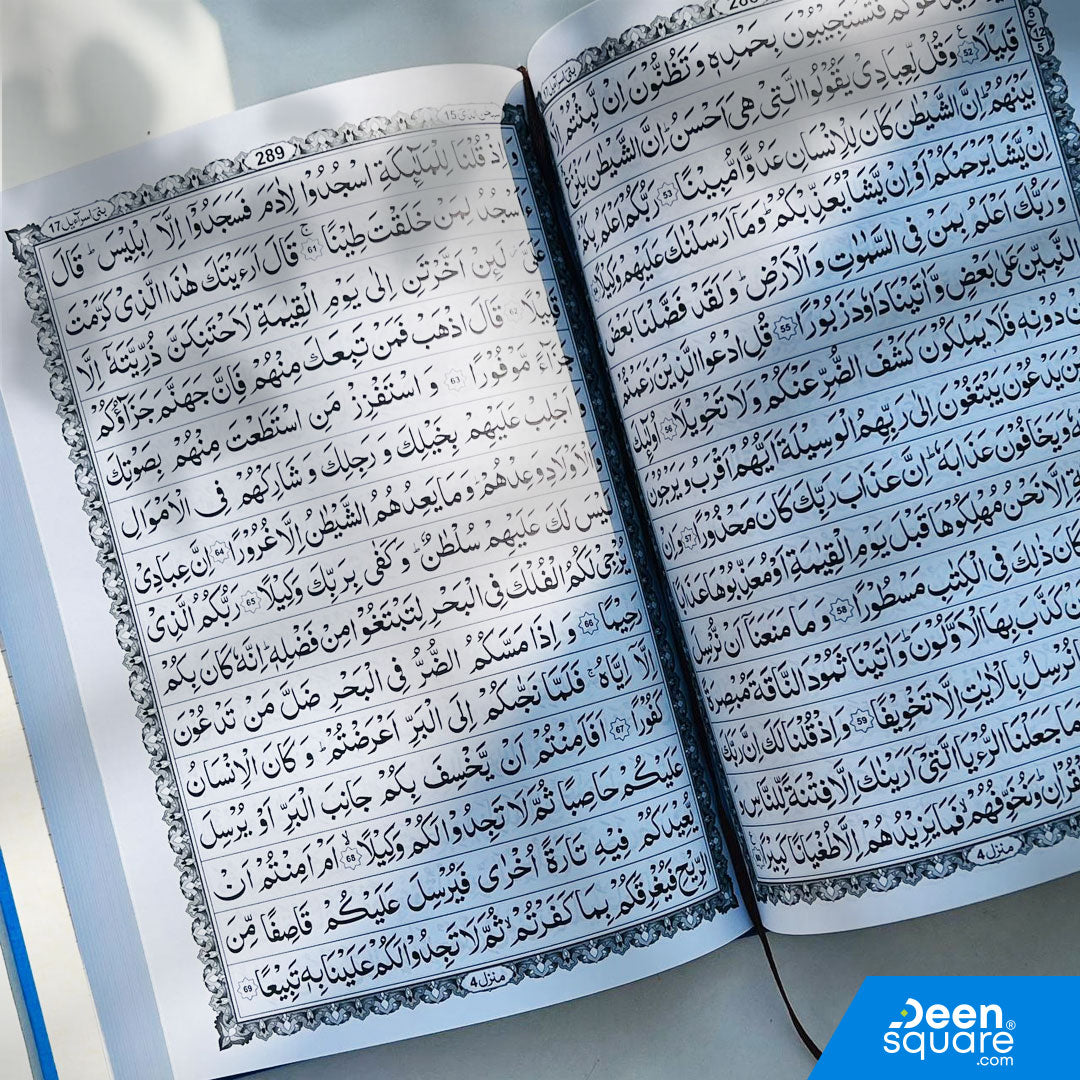 288
بنی اسرآءیل 17
يَدْعُوْكُمْ فَتَسْتَجِيْبُوْنَ بِحَمْدِهٖ وَ تَظُنُّوْنَ اِنْ لَّبِثْتُمْ اِلَّا
قَلِيْلًا 52 وَقُلْ لِّعِبَادِيْ يَقُوْلُوا الَّتِيْ هِيَ اَحْسَنُ ؕ اِنَّ الشَّيْطٰنَ
بَيْنَهُمْ ؕ اِنَّ الشَّيْطٰنَ كَانَ لِلْاِنْسَانِ عَدُوًّا مُّبِيْنًا 53 رَبُّكُمْ اَعْلَمُ بِكُمْ
اِنْ يَّشَاْ يَرْحَمْكُمْ اَوْ اِنْ يَّشَاْ يُعَذِّبْكُمْ ؕ وَمَاۤ اَرْسَلْنٰكَ عَلَيْهِمْ وَكِيْلًا
وَ رَبُّكَ اَعْلَمُ بِمَنْ فِي السَّمٰوٰتِ وَ الْاَرْضِ ؕ وَ لَقَدْ فَضَّلْنَا بَعْضَ
النَّبِيّٖنَ عَلٰى بَعْضٍ وَّ اٰتَيْنَا دَاوٗدَ زَبُوْرًا 55 قُلِ ادْعُوا الَّذِيْنَ زَعَمْتُمْ
مِّنْ دُوْنِهٖ فَلَا يَمْلِكُوْنَ كَشْفَ الضُّرِّ عَنْكُمْ وَ لَا تَحْوِيْلًا 56 اُولٰٓئِكَ
الَّذِيْنَ يَدْعُوْنَ يَبْتَغُوْنَ اِلٰى رَبِّهِمُ الْوَسِيْلَةَ اَيُّهُمْ اَقْرَبُ وَ يَرْجُوْنَ
وَيَخَافُوْنَ عَذَابَهٗ ؕ اِنَّ عَذَابَ رَبِّكَ كَانَ مَحْذُوْرًا 57 وَاِنْ
اِلَّا نَحْنُ مُهْلِكُوْهَا قَبْلَ يَوْمِ الْقِيٰمَةِ اَوْ مُعَذِّبُوْهَا عَذَابًا
كَانَ ذٰلِكَ فِي الْكِتٰبِ مَسْطُوْرًا 58 وَ مَا مَنَعَنَاۤ اَنْ نُّرْسِلَ
اَنْ كَذَّبَ بِهَا الْاَوَّلُوْنَ ؕ وَ اٰتَيْنَا ثَمُوْدَ النَّاقَةَ مُبْصِرَةً
نُرْسِلُ بِالْاٰيٰتِ اِلَّا تَخْوِيْفًا 59 وَ اِذْ قُلْنَا لَكَ اِنَّ رَبَّكَ
مَا جَعَلْنَا الرُّءْيَا الَّتِيْۤ اَرَيْنٰكَ اِلَّا فِتْنَةً لِّلنَّاسِ
الْقُرْاٰنِ ؕ وَ نُخَوِّفُهُمْ ۙ فَمَا يَزِيْدُهُمْ اِلَّا طُغْيَانًا كَبِيْرًا
منزل 4
289
15
بنی اسرآءیل 17
وَ اِذْ قُلْنَا لِلْمَلٰٓئِكَةِ اسْجُدُوْا لِاٰدَمَ فَسَجَدُوْۤا اِلَّاۤ اِبْلِيْسَ ؕ قَالَ
ءَاَسْجُدُ لِمَنْ خَلَقْتَ طِيْنًا 61 قَالَ اَرَءَيْتَكَ هٰذَا الَّذِيْ كَرَّمْتَ
عَلَيَّ ۫ لَئِنْ اَخَّرْتَنِ اِلٰى يَوْمِ الْقِيٰمَةِ لَاَحْتَنِكَنَّ ذُرِّيَّتَهٗۤ اِلَّا
قَلِيْلًا 62 قَالَ اذْهَبْ فَمَنْ تَبِعَكَ مِنْهُمْ فَاِنَّ جَهَنَّمَ جَزَآؤُكُمْ
جَزَآءً مَّوْفُوْرًا 63 وَ اسْتَفْزِزْ مَنِ اسْتَطَعْتَ مِنْهُمْ بِصَوْتِكَ
وَ اَجْلِبْ عَلَيْهِمْ بِخَيْلِكَ وَ رَجِلِكَ وَ شَارِكْهُمْ فِي الْاَمْوَالِ
وَ الْاَوْلَادِ وَعِدْهُمْ ؕ وَ مَا يَعِدُهُمُ الشَّيْطٰنُ اِلَّا غُرُوْرًا 64 اِنَّ عِبَادِيْ
لَيْسَ لَكَ عَلَيْهِمْ سُلْطٰنٌ ؕ وَ كَفٰى بِرَبِّكَ وَكِيْلًا 65 رَبُّكُمُ الَّذِيْ
يُزْجِيْ لَكُمُ الْفُلْكَ فِي الْبَحْرِ لِتَبْتَغُوْا مِنْ فَضْلِهٖ ؕ اِنَّهٗ كَانَ بِكُمْ
رَحِيْمًا 66 وَ اِذَا مَسَّكُمُ الضُّرُّ فِي الْبَحْرِ ضَلَّ مَنْ تَدْعُوْنَ
اِلَّاۤ اِيَّاهُ ۚ فَلَمَّا نَجّٰىكُمْ اِلَى الْبَرِّ اَعْرَضْتُمْ ؕ وَ كَانَ الْاِنْسَانُ
كَفُوْرًا 67 اَفَاَمِنْتُمْ اَنْ يَّخْسِفَ بِكُمْ جَانِبَ الْبَرِّ اَوْ يُرْسِلَ
عَلَيْكُمْ حَاصِبًا ثُمَّ لَا تَجِدُوْا لَكُمْ وَكِيْلًا 68 اَمْ اَمِنْتُمْ اَنْ
يُّعِيْدَكُمْ فِيْهِ تَارَةً اُخْرٰى فَيُرْسِلَ عَلَيْكُمْ قَاصِفًا مِّنَ
الرِّيْحِ فَيُغْرِقَكُمْ بِمَا كَفَرْتُمْ ۙ ثُمَّ لَا تَجِدُوْا لَكُمْ عَلَيْنَا بِهٖ تَبِيْعًا 69
منزل 4
Deen
square®
.com